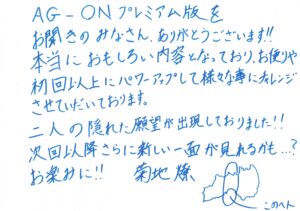 AG-ONプレミアム版を
お聞きのみなさん、ありがとうございます!!
本当におもしろい内容となっており、お便りや
初回以上にパワーアップして様々な事にチャレンジ
させていただいております。
二人の隠れた願望が出現しておりました!!
次回以降さらに新しい一面が見れるかも…?
お楽みに!! 菊地 燎
このへん